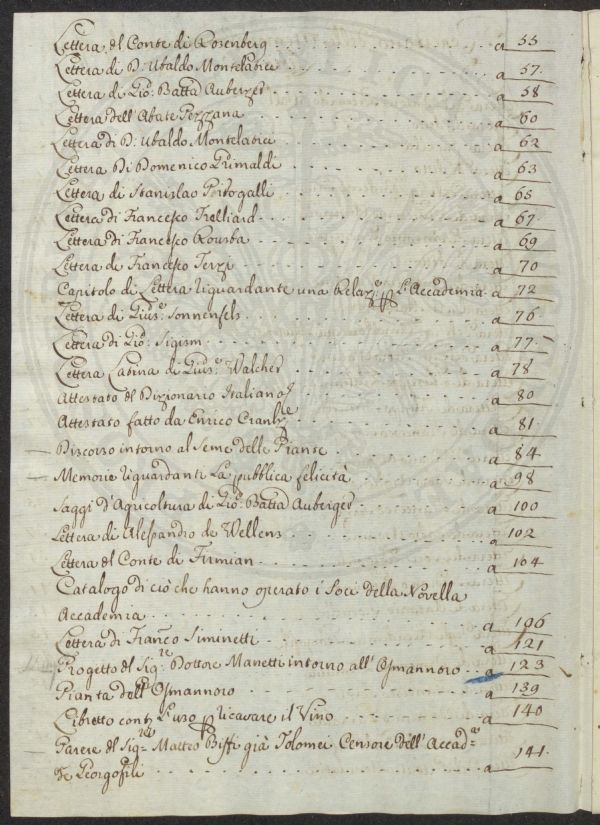 Lettera del Conte di Rosenberg . . . . . . . . a 55
Lettera di D: Ubaldo Montelatici . . . . . . . . a 57.
Lettera di Gio: Batta Auberger . . . . . . . . a 58
Lettera dell'Abate Pezzana . . . . . . . . a 60
Lettera di D: Ubaldo Montelatici . . . . . . . . a 62
Lettera Di Domenico Grimaldi . . . . . . . . a 63
Lettera di Stanislao Portogalli . . . . . . . . a 65
Lettera di Francesco Trelliard . . . . . . . . a 67.
Lettera di Francesco Rourba . . . . . . . . a 69
Lettera di Francesco Terzi . . . . . . . . a 70
Capitolo di Lettera riguardante una Relaz.e p L'Accademia . a 72
Lettera di Gius.e Sonnenfels . . . . . . . . a 76
Lettera di Gio: Sigism . . . . . . . . a 77.
Lettera Latina di Gius.e Walcher . . . . . . . . a 78
Attestato del Dizionario Italiano . . . . . . . . a 80
Attestato fatto da Enrico . . . . . . . . a 81
Discorso intorno al Seme delle Piante . . . . . . . . a 84
Memorie riguardanti La pubblica felicità . . . . . . . . a 98
Saggi d'Agricoltura di Gio: Batta Auberger . . . . . . . . a 100
Lettera di Alessandro de Wellens . . . . . . . . a 102
Lettera del Conte di Firmian . . . . . . . . a 104
Catalogo di ciò che hanno operato i Soci della Novella
Accademia . . . . . . . . a 106
Lettera di Franc.o Siminetti . . . . . . . . a 121
Progetto del Sig.re Dottore Manetti intorno all'Osmannoro . . a 123
Pianta dell'Osmannoro . . . . . . . . a 139
Libretto cont.e L'uso p ricavare il Vino . . . . . . . . a 140
Parere del Sig.re Matteo Biffi già Tolomei Censore dell'Accad.a
de Georgofili . . . . . . . . a 141.